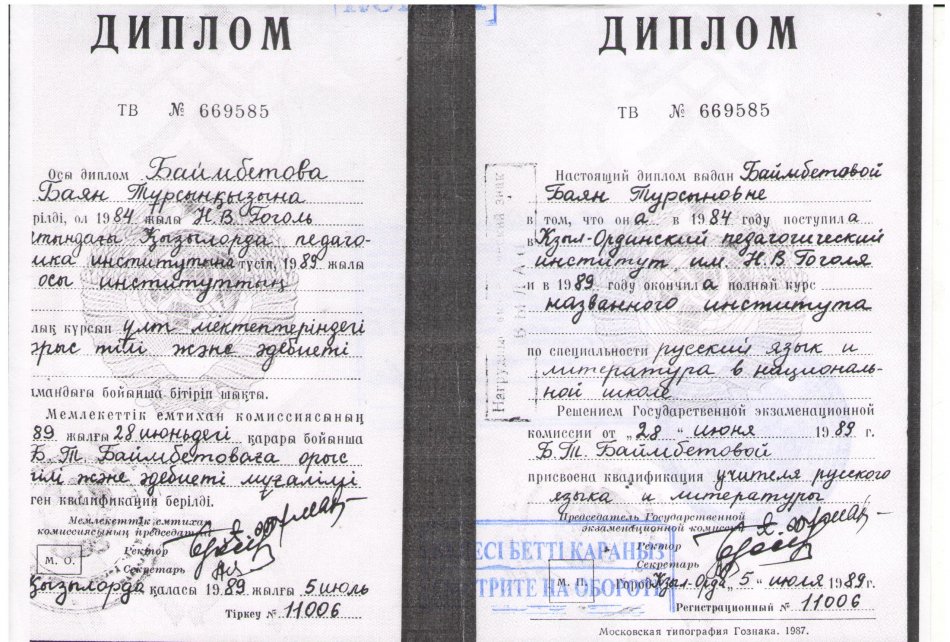 ДИПЛОМ
ТВ № 669585
Осы диплом Баймбетова
Баян Турсынқызына
рілді, ол 1984 жылы Н. В. Гоголь
тындағы Қызылорда педаго-
ика институтына түсіп, 1989 жылы
осы институттың
лық курсын ұлт мектептеріндегі
орыс тілі және әдебиеті
мандығы бойынша бітіріп шықты.
Мемлекеттік емтихан комиссиясының
89 жылғы 28 июньдегі қарары бойынша
Б. Т. Баймбетоваға орыс
тілі және әдебиеті мұғалімі
ген квалификация берілді.
Мемлекеттік емтихан
комиссиясының председателі
Ректор
Секретарь
М. О.
Қызылорда қаласы 1989 жылғы 5 июль
Тіркеу № 11006
ДИПЛОМ
ТВ № 669585
Настоящий диплом выдан Баймбетовой
Баян Турсыновне
в том, что она в 1984 году поступила
в Кзыл-Ординский педагогический
институт им. Н. В. Гоголя
и в 1989 году окончила полный курс
названного института
по специальности русский язык и
литература в националь-
ной школе
Решением Государственной экзаменационной
комиссии от „28“ июня 1989 г.
Б. Т. Баймбетовой
присвоена квалификация учителя русского
языка и литературы
Председатель Государственной
экзаменационной комиссии
Ректор
Секретарь
М. П.
Город Кзыл-Орда, 5 „ июля 1989г.
Регистрационный № 11006
Московская типография Гознака. 1987.
Нагрудный знак
ВЫДАН
ЕСІ БЕТТІ ҚАРАҢЫЗ
ТРИТЕ НА ОБОРОТЕ